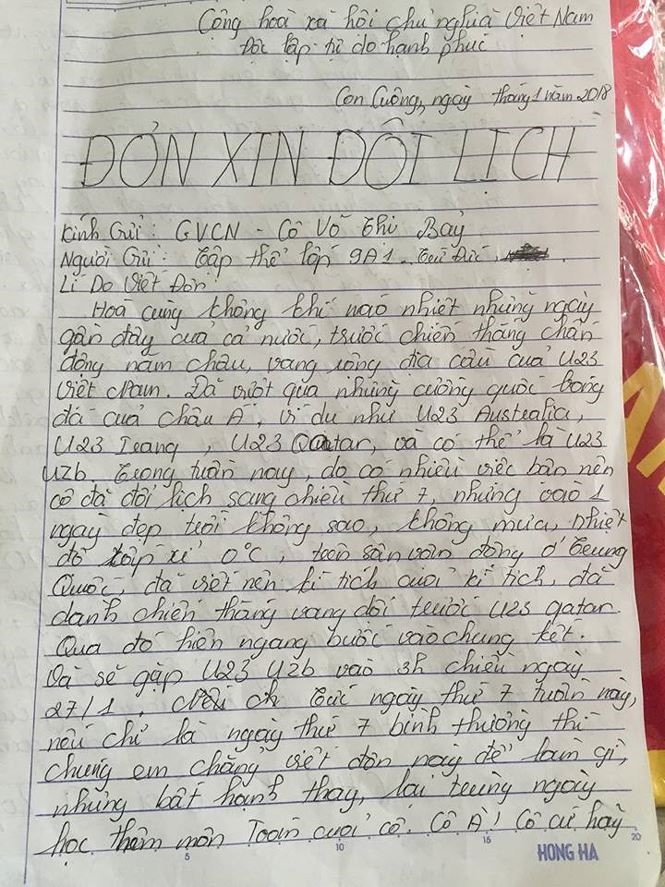 Cộng hoà xã hội chủ nghĩa Việt Nam
Độc lập tự do hạnh phúc
Con Cuông, ngày tháng 1 năm 2018
ĐƠN XIN ĐỔI LỊCH
Kính Gửi: GVCN - Cô Võ Thị Bảy
Người Gửi: Tập thể lớp 9A1.
Lí Do Viết Đơn:
Hoà cùng không khí náo nhiệt những ngày
gần đây của cả nước, trước chiến thắng chấn
động năm châu, vang vọng địa cầu của U23
Việt Nam. Đã vượt qua những cường quốc bóng
đá của châu Á, ví dụ như U23 Australia,
U23 Iraq, U23 Qatar, và có thể là U23
Uzb. Trong tuần này, do có nhiều việc bận nên
cô đã đổi lịch sang chiều thứ 7, nhưng vào 1
ngày đẹp trời không sao, không mưa, nhiệt
độ xấp xỉ 0°C, trên sân vận động ở Trung
Quốc, đã viết nên kì tích của kì tích, đã
dành chiến thắng vang dội trước U23 qatar.
Qua đó hiên ngang bước vào chung kết.
Và sẽ gặp U23 Uzb vào 3h chiều ngày
27/1. Tức ngày thứ 7 tuần này,
nếu chỉ là ngày thứ 7 bình thường thì
chúng em chẳng viết đơn này để làm gì,
nhưng bất hạnh thay, lại trùng ngày
học thêm môn Toán của cô. Cô À! Cô cứ hãy
5 10 15 20
HONG HA